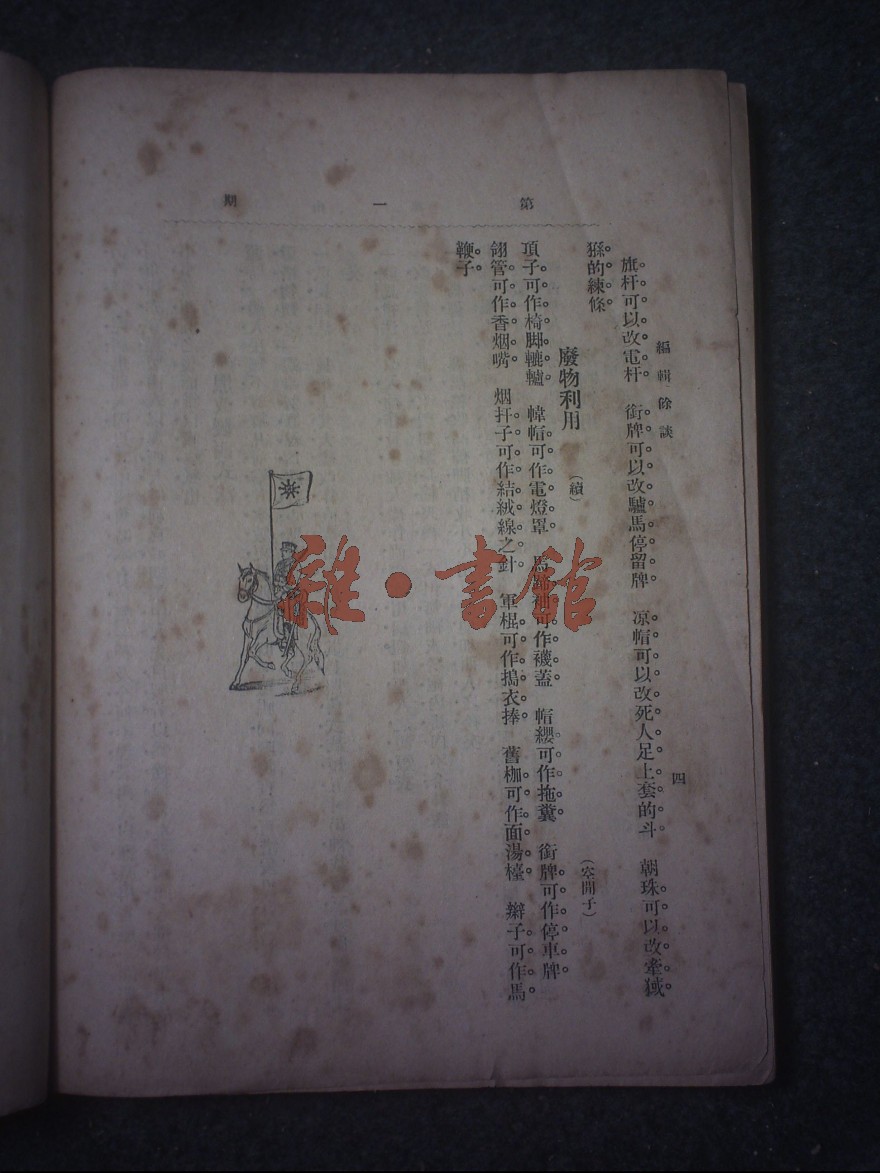 第一期
編輯餘談
四
旗杆可以改電杆 銜牌可以改驢馬停留牌 凉帽可以改死人足上套的斗 朝珠可以改牽猢
猻的練條
廢物利用 (續) (空閒子)
頂子可作椅脚轆轤 幃帽可作電燈罩 馬蹄袖可作襪蓋 帽纓可作拖糞 銜牌可作停車牌
翎管可作香烟嘴 烟扦子可作結絨線之針 軍棍可作搗衣捧 舊枷可作面湯檯 辮子可作馬
鞭子
雜·書館